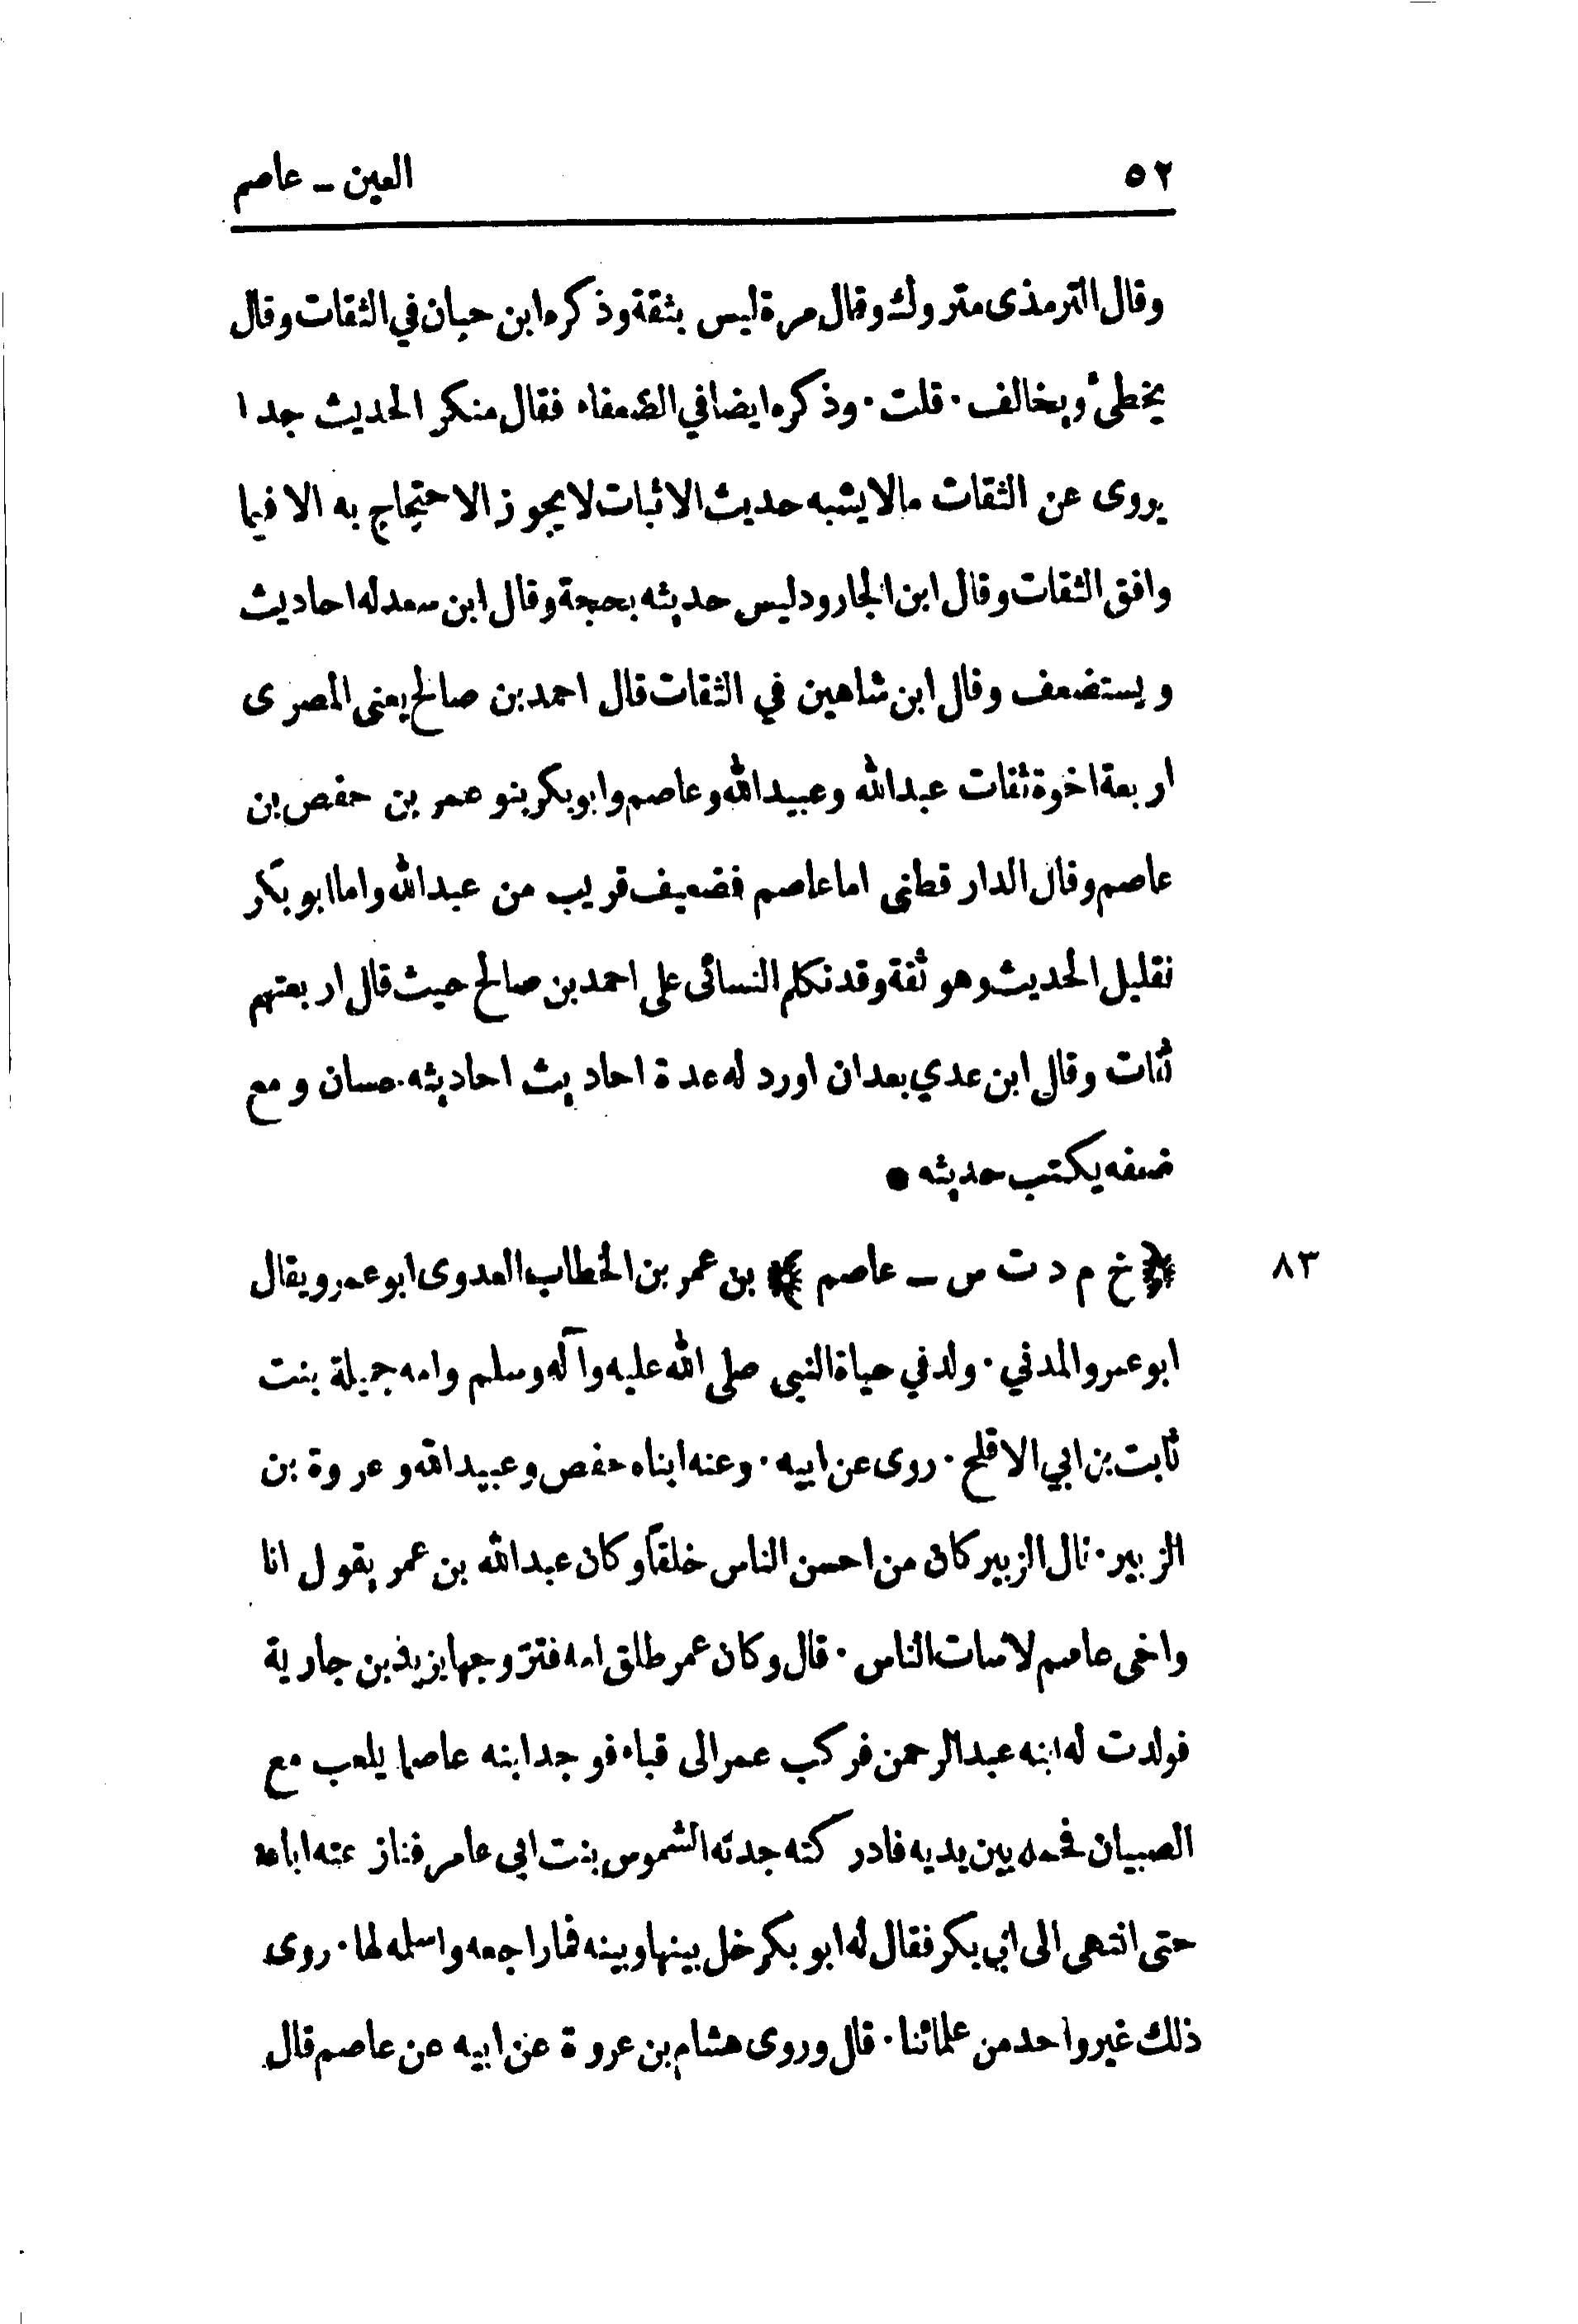 ٥٢
العين ـ عاصم
وقال الترمذى متروك وقال مرة ليس بثقة وذكره ابن حبان في الثقات وقال
يخطئ ويخالف · قلت · وذكره ايضا في الضعفاء فقال منكر الحديث جدا
يروى عن الثقات مالا يشبه حديث الاثبات لا يجوز الاحتجاج به الا فيما
وافق الثقات وقال ابن الجارود ليس حديثه بحجة وقال ابن سعد له احاديث
ويستضعف وقال ابن شاهين في الثقات قال احمد بن صالح يعنى المصرى
اربعة اخوة ثقات عبدالله وعبيدالله وعاصم وابوبكر بنو عمر بن حفص بن
عاصم وقال الدار قطنى اما عاصم فضعيف قريب من عبدالله واما ابو بكر
فقليل الحديث وهو ثقة وقد تكلم النسائى على احمد بن صالح حيث قال اربعتهم
ثقات وقال ابن عدي بعد ان اورد له عدة احاديث احاديثه حسان ومع
ضعفه يكتب حديثه ●
٨٣ ﴿ خ م د ت س ـ عاصم ﴾ بن عمر بن الخطاب العدوى ابوعمر ويقال
ابو عمرو المدني · ولد في حياة النبى صلى الله عليه وآله وسلم وامه جميلة بنت
ثابت بن ابي الاقلح · روى عن ابيه · وعنه ابناه حفص وعبيدالله وعروة بن
الزبير · قال الزبير كان من احسن الناس خلقاً وكان عبدالله بن عمر يقول انا
واخى عاصم لا نساب الناس · قال وكان عمر طلق امه فتزوجها يزيد بن جارية
فولدت له ابنه عبدالرحمن فركب عمر الى قباء فوجد ابنه عاصما يلعب مع
الصبيان فحمله بين يديه فادركته جدته الشموس بنت ابي عامر فنازعته اياه
حتى انتهى الى ابي بكر فقال له ابو بكر خل بينها وبينه فما راجعه واسلمه لها · روى
ذلك غير واحد من علمائنا · قال وروى هشام بن عروة عن ابيه عن عاصم قال